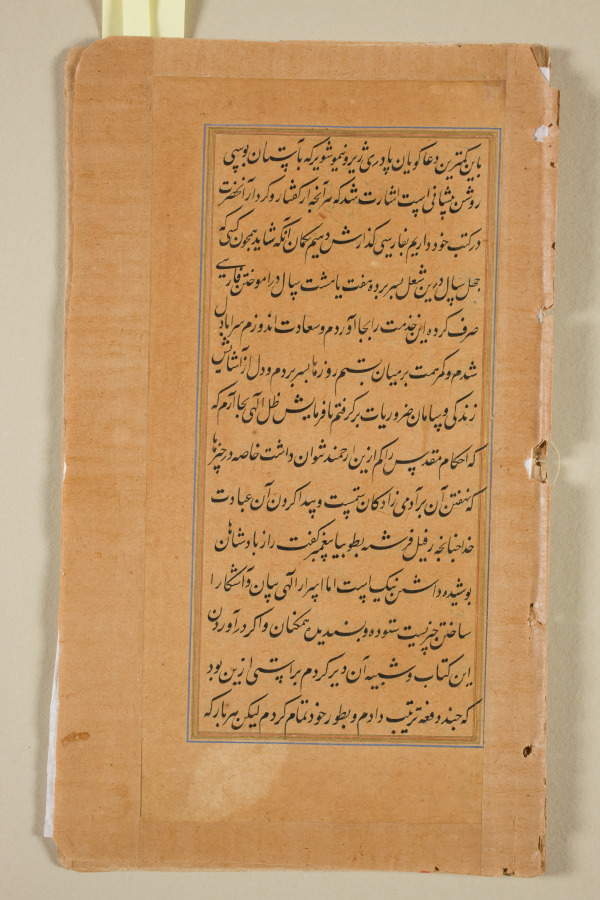 باین کمترین دعاکویان پادری ژیرونیمو شویر که بآستان بوسی
روشن پیشانی است اشارت شد که هر آنچه از کفتار و کردار آنحضرت
در کتب خود داریم بفارسی کذارش دهیم بکمان آنکه شاید همچون کسی که
چهل سال درین شغل بسر برده هفت یا هشت سال در اموختن فارسی
صرف کرده این خدمت را بجا آوردم و سعادت اندوزم سراپا دل
شدم و کمر همت بر میان بستم روزها بسر بردم و دل از آسایش
زندکی و سامان ضروریات برکرفتم تا فرمایش ظل الهی بجا آرم که
که احکام مقدس را کم ازین ارجمند نتوان داشت خاصه در چیزها
که نهفتن آن بر آدمی زادکان ستمست و پیدا کردن آن عبادت
خدا چنانچه رفیل فرشته بطوبیا پیغمبر کفت راز پادشاهان
پوشیده داشتن نیک است اما اسرار الهی بیان و آشکارا
ساختن چیزیست ستوده و پسندیده همکنان و اکر در آوردن
این کتاب و شبیه آن دیر کردم براستی ازین بود
که چند دفعه ترتیب دادم و بطور خود تمام کردم لیکن هر بار که